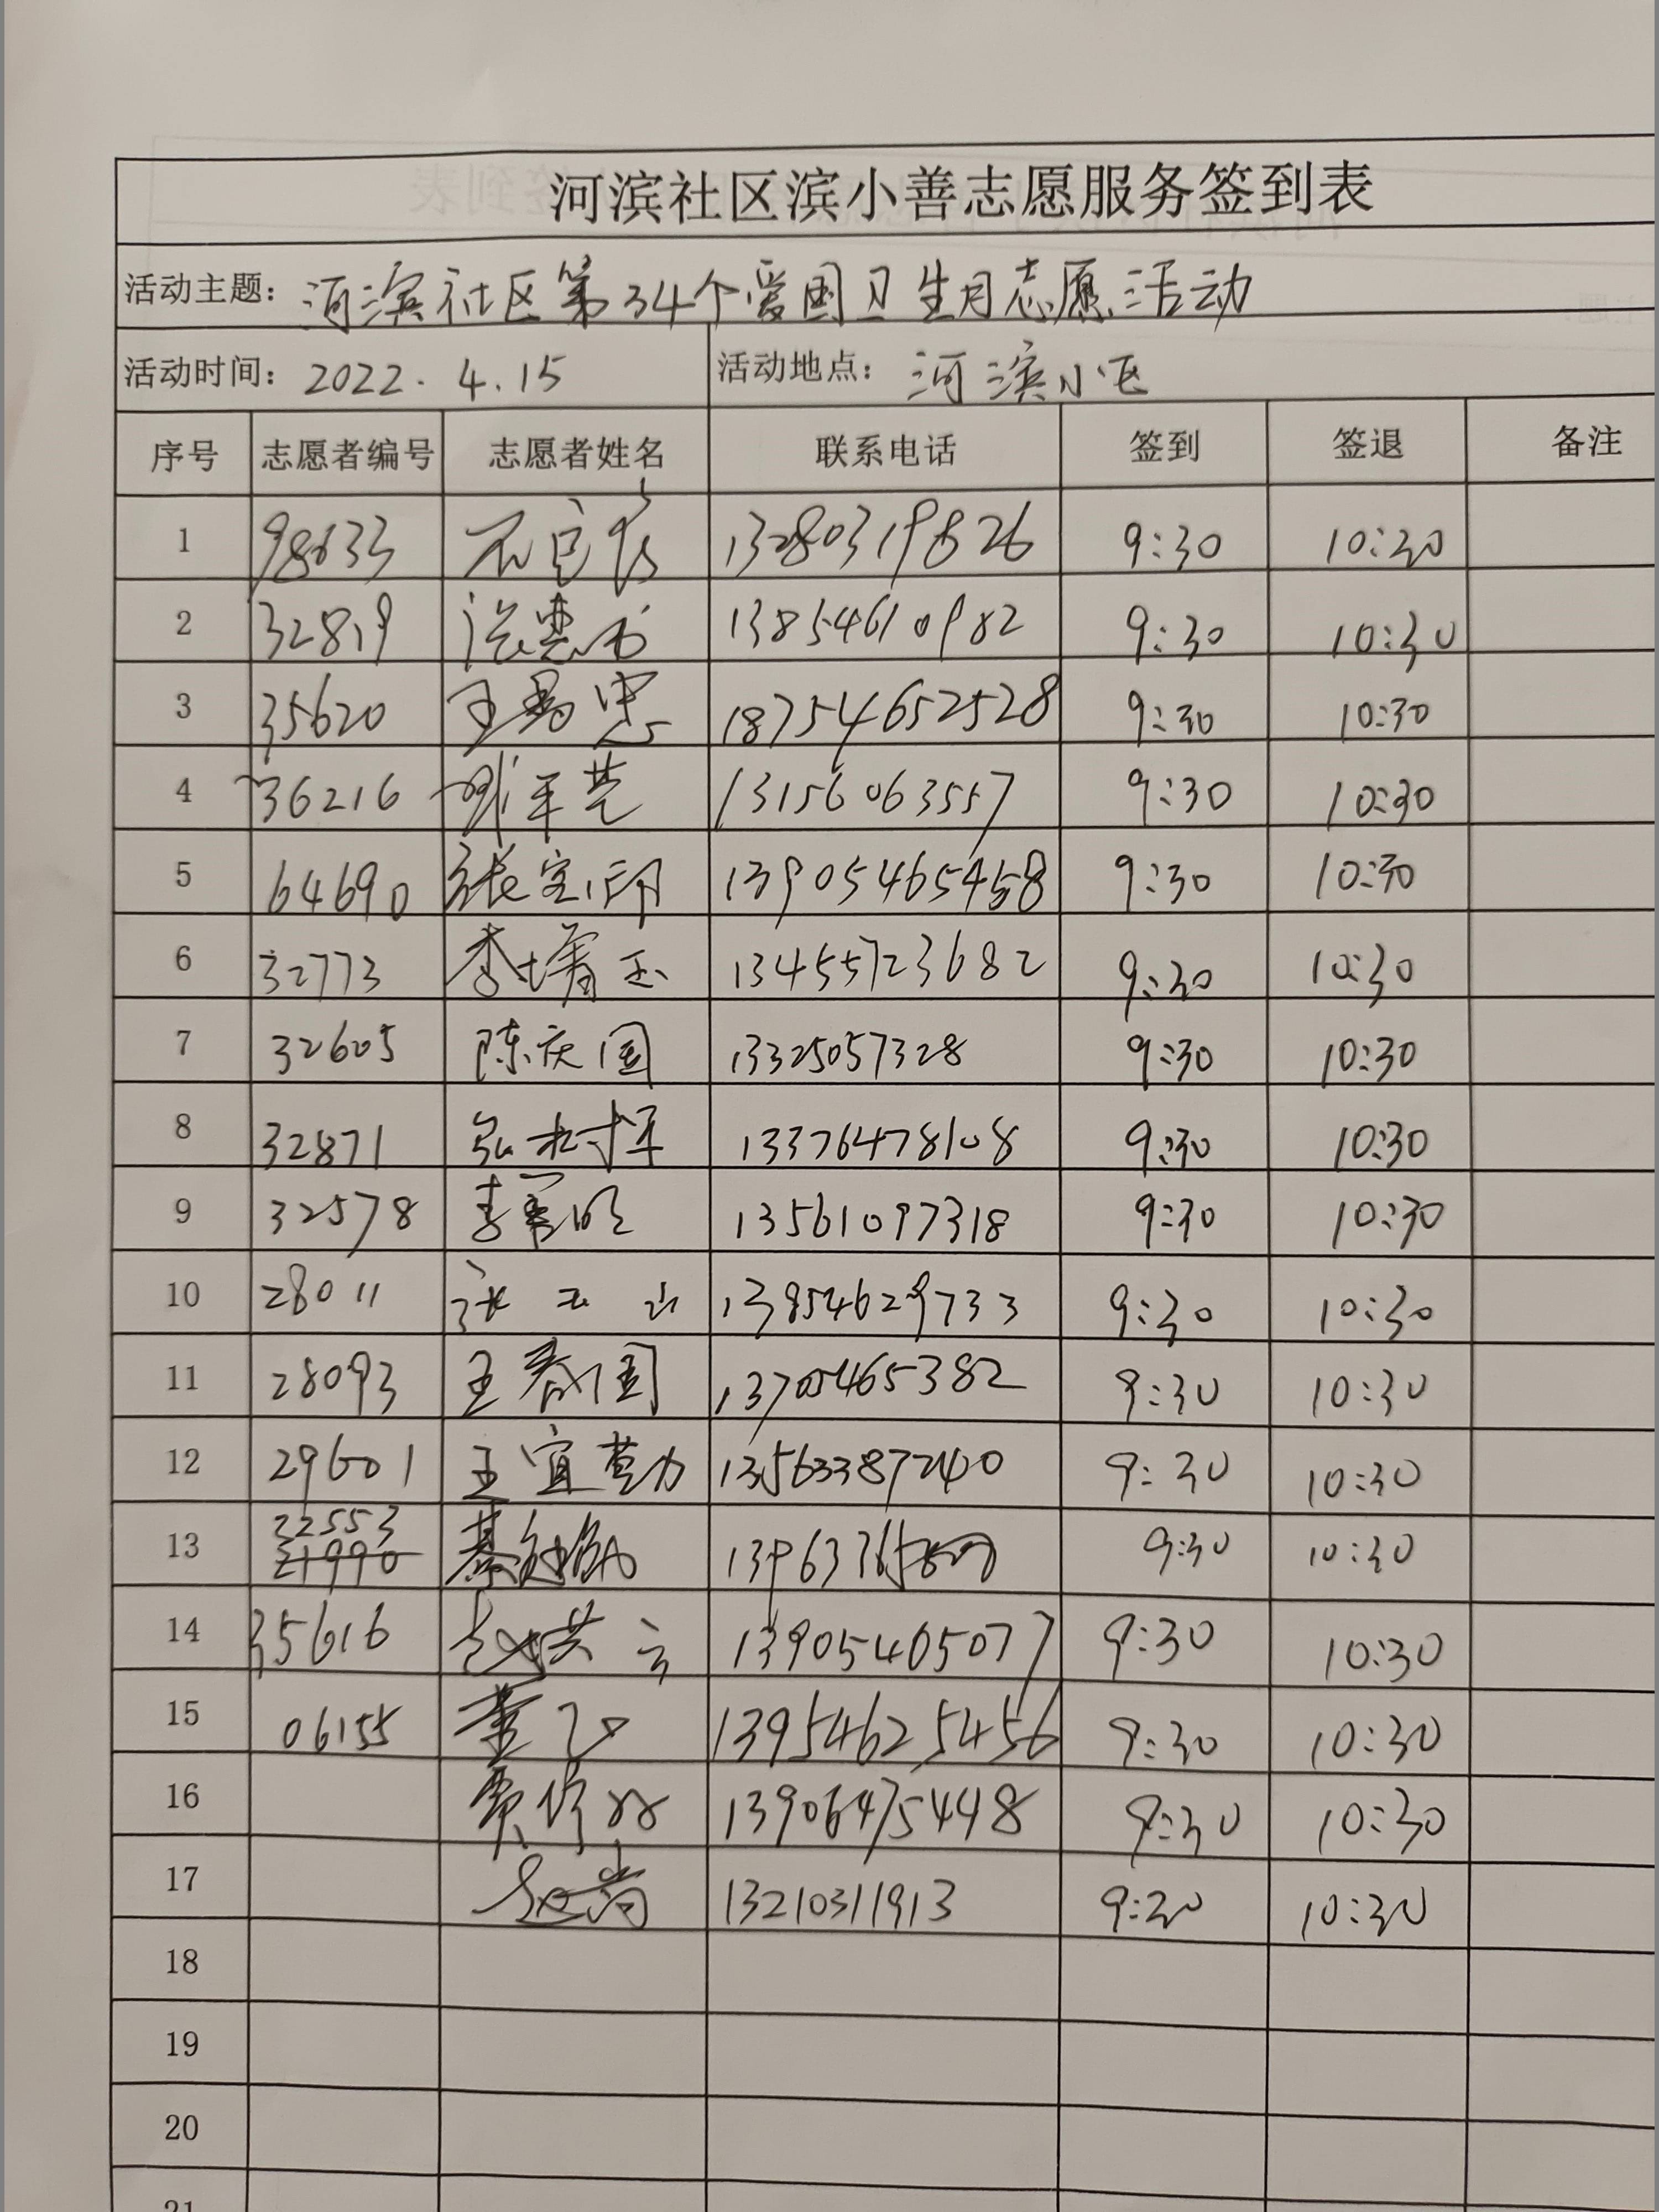 河滨社区滨小善志愿服务签到表
活动主题: 河滨社区第34个爱国卫生月志愿活动
活动时间: 2022.4.15 活动地点: 河滨小区
序号 志愿者编号 志愿者姓名 联系电话 签到 签退 备注
1 98633 13280319826 9:30 10:30
2 32819 13854610982 9:30 10:30
3 35620 18754652528 9:30 10:30
4 36216 13156063557 9:30 10:30
5 64690 张宝印 13905465458 9:30 10:30
6 32773 13455723682 9:30 10:30
7 32605 陈庆国 13325057328 9:30 10:30
8 32871 13376478108 9:30 10:30
9 32578 13561097318 9:30 10:30
10 28011 13854629733 9:30 10:30
11 28093 王春国 13705465382 9:30 10:30
12 29601 王宜勤 13563387240 9:30 10:30
13 32553 9:30 10:30
14 35616 赵洪云 13905465077 9:30 10:30
15 06155 13954625456 9:30 10:30
16 13906475448 9:30 10:30
17 13210311913 9:30 10:30
18
19
20
21